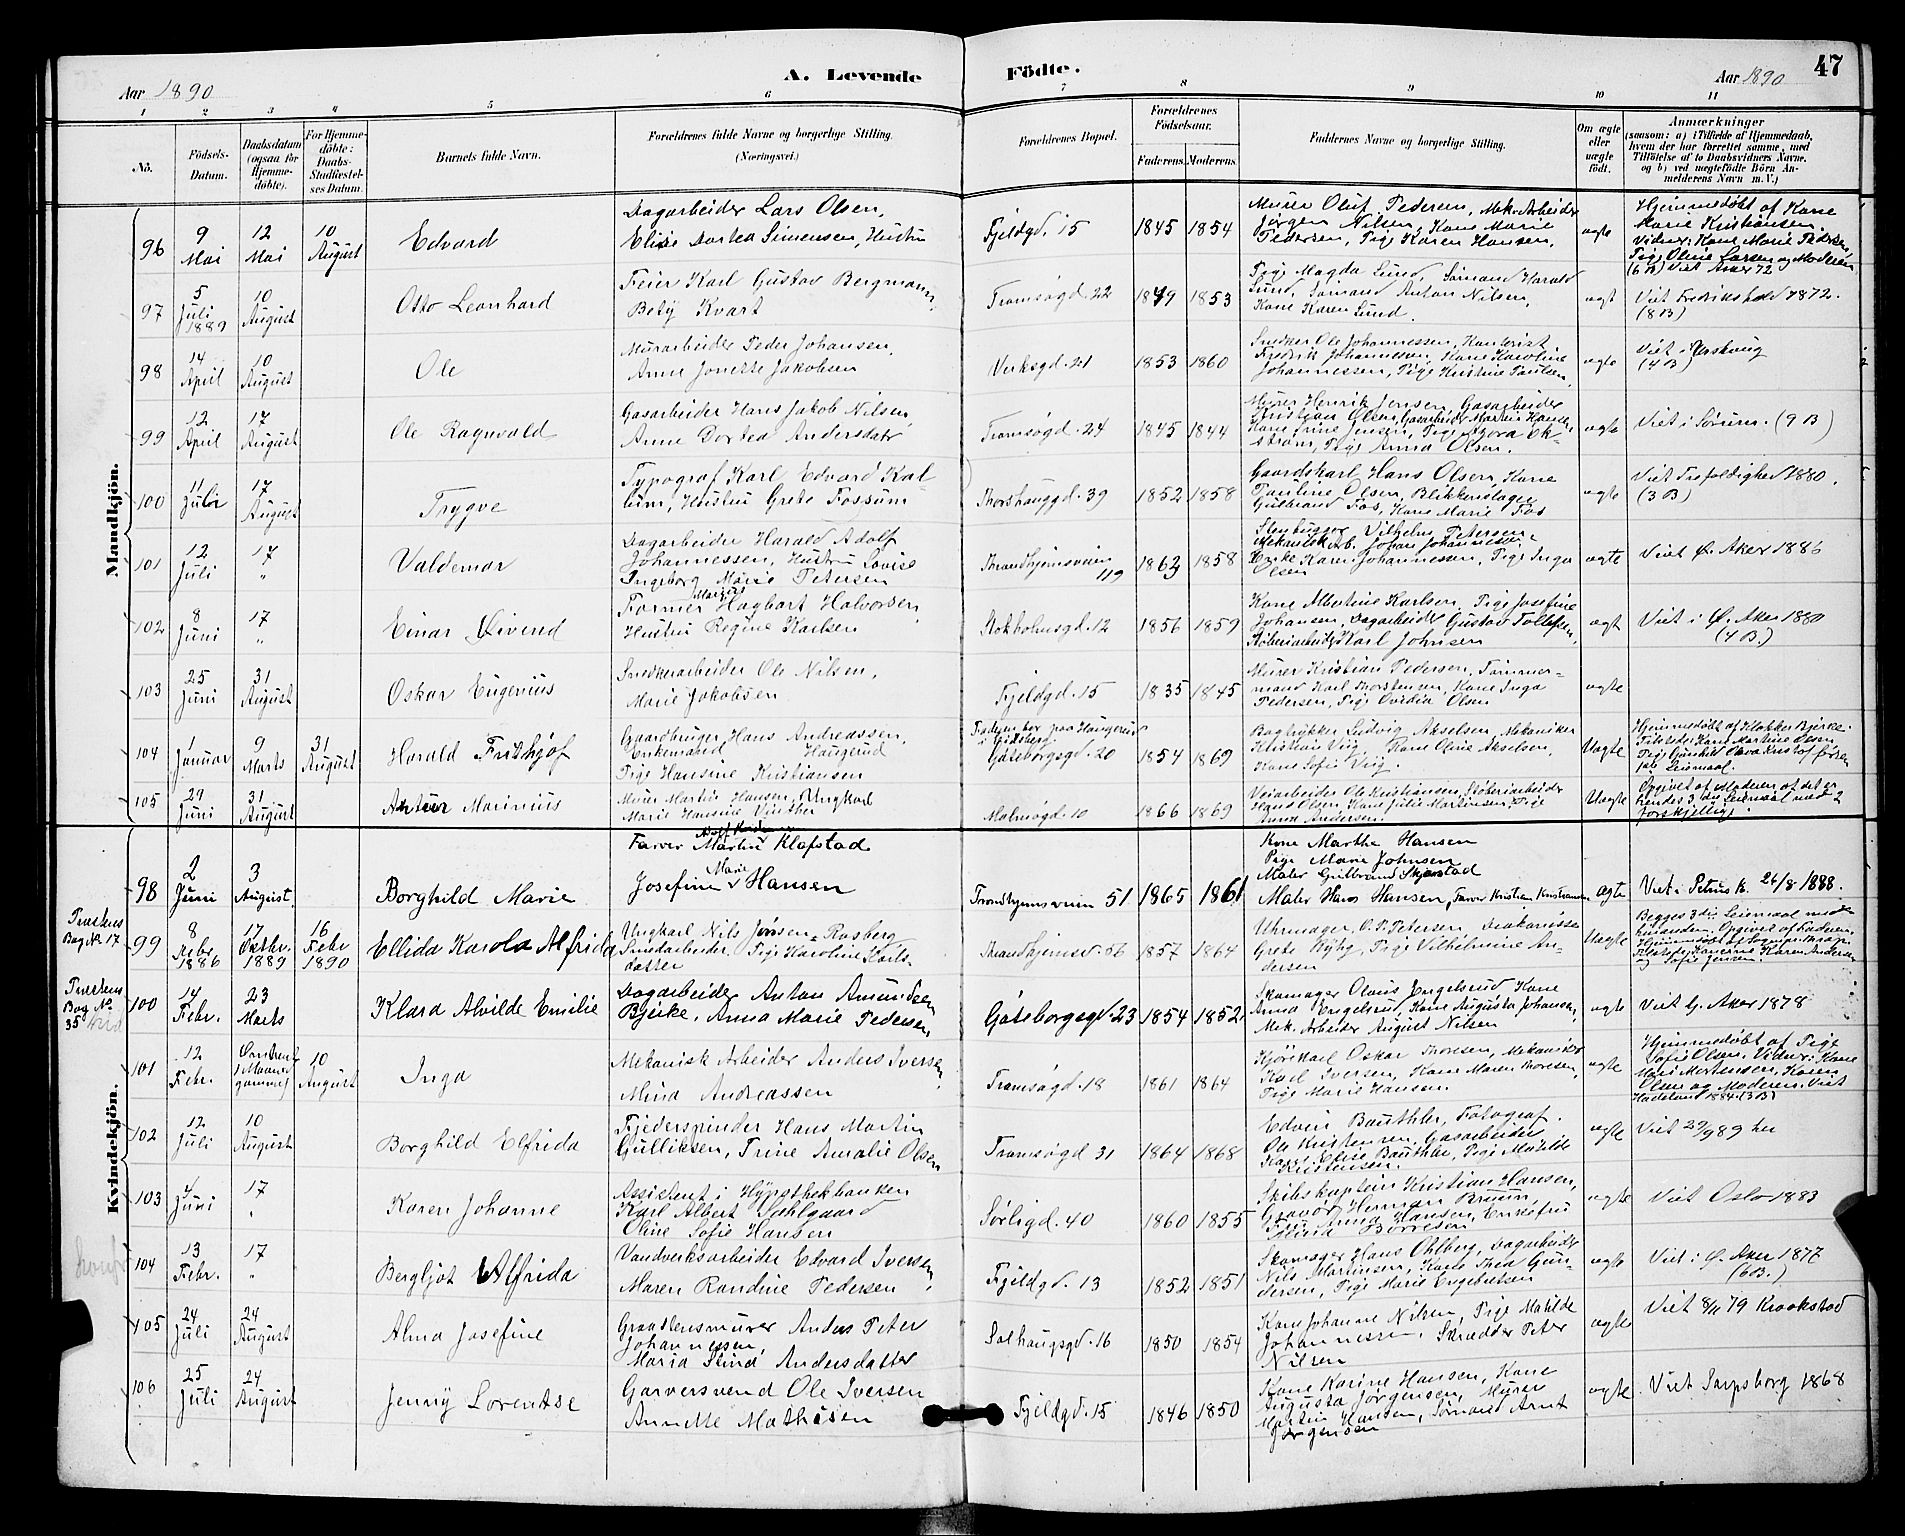 Aar 1890
A. Levende Födte.
Aar 1890
47
1 2 3 4 5 6 7 8 9 10 11
No.
Födsels-Datum.
Daabsdatum (ogsaa for Hjemmedöbte).
For Hjemmedöbte: Daabs-Stadfæstelses Datum.
Barnets fulde Navn.
Forældrenes fulde Navne og borgerlige Stilling. (Næringsvei.)
Forældrenes Bopæl.
Forældrenes Födselsaar.
Faderens. Moderens.
Faddernes Navne og borgerlige Stilling.
Om ægte eller uægte födt.
Anmærkninger
(saasom: a) i Tilfælde af Hjemmedaab, hvem der har forrettet samme, med Tilföielse af to Daabsvidners Navne. og b) ved uegtefödte Börn Anmelderens Navn m. V.)
Mandkjön.
96 9 Mai 12 Mai 10 August Edvard
Dagarbeider Lars Olsen,
Elise Dortea Simensen, Hustru
Fjeldgd. 15 1845 1854
Murer Oluf Pedersen, Mek. Arbeider
Jörgen Nilsen, Kone Marie
Pedersen, Pige Karen Hansen.
ægte
Hjemmedöbt af Kone
Marie Kristiansen.
Vidner: Kone Marie Pedersen,
Pige Oline Larsen og Moderen
(6 B) Viet Aker 72
97 5 Juli 1889 10 August Otto Leonhard
Feier Karl Gustav Bergmann,
Bety Kvart
Tromsøgd. 22 1849 1853
Pige Magda Lund, Sömand Harald
Lund, Sömand Anton Nilsen,
Kone Karen Lund.
ægt
Viet Fredrikshald 1872.
(8 B)
98 14 April 10 August Ole
Murarbeider Peder Johansen,
Anne Jonette Jakobsen
Verksgd. 21 1853 1860
Snedker Ole Johannessen, Kontorist
Fredrik Johannessen, Kone Karoline
Johannessen, Pige Kristine Paulsen,
ægte
Viet i Urskoug
(4 B)
99 12 April 17 August Ole Ragnvald
Gasarbeider Hans Jakob Nilsen,
Anne Dortea Andersdatr
Tromsøgd. 24 1845 1844
Murer Henrik Jensen, Gasarbeider
Kristian Olsen, Gasarbeider Martin Hansen
Kone Trine Jensen, Pige Thora Ekström, Pige Anna Olsen.
ægte
Viet i Sörum. (9 B)
100 11 Juli 17 August Trygve
Typograf Karl Edvard Kallum, Hustru Grete Fossum
Thorshauggd. 39 1852 1858
Gaardskarl Hans Olsen, Kone
Pauline Olsen, Blikkenslager
Gulbrand Fos, Kone Marie Fos
ægte
Viet Trefoldighed 1880.
(3 B)
101 12 Juli 17 " Valdemar
Dagarbeider Harald Adolf
Johannessen, Hustru Lovise
Ingeborg Marie Petersen
Trondhjemsveien 119 1863 1858
Stenhugger Vilhelm Petersen,
Mekanisk Arb. Johan Johannessen,
Enke Karen Johannessen, Pige Inga
Olsen
ægte
Viet Ø. Aker 1886
102 8 Juni 17 " Einar Eivind
Former Hagbart Halvorsen
Hustru Regine Karlsen
Stokholmsgd. 12 1856 1859
Kone Albertine Karlsen, Pige Josefine
Johansen, Dagarbeider Gustav Tollefsen,
Støberiarbeider Karl Johnsen
ægt
Viet i Ø. Aker 1880
(4 B.)
103 25 Juni 31 August Oskar Eugenius
Snedkerarbeider Ole Nilsen,
Marie Jakobsen
Fjeldgd. 15 1835 1845
Murer Kristian Pedersen, Tømmermand Karl Thorstensen, Kone Inga
Pedersen, Pige Ovidia Olsen
ægte
104 1 Januar 9 Marts 31 August Harald Fridthjof
Gaardbruger, Hans Andreassen,
Enkemand Haugerud
Pige Hansine Kristiansen
Faderen bor paa Haugerud
i Gidsberg.
Gøteborgsgd. 20 1854 1869
Bogtrykker Ludvig Akselsen, Mekaniker
Kristian Viig, Kone Oline Akselsen,
Kone Sofie Viig.
Uægte
105 29 Juni 31 August Artur Marinius
Murer Martin Hansen, Ungkarl
Marie Hansine Vinther
Malmøgd. 10 1866 1869
Veiarbeider Ole Kristiansen, Støberiarbeider
Hans Olsen, Kone Julie Martinsen, Pige
Anna Andersen.
Uægte
Opgivet af Moderen at det er
hendes 3die Leiemaal med 2
forskjellige.
Kvindekjön.
98 2 Juni 3 August. Borghild Marie
Farver Martin Klafstad
Josefine Marie Hansen
Trondhjemsveien 51 1865 1861
Kone Marthe Hansen
Pige Marie Johnsen
Maler Gulbrand Skjørstad
Maler Hans Hansen, Farver Kristian Kristiansen
ægte
Viet i Petrus K. 26/8 1888.
Præstens
Bog No 17
99 8 Febr 1886 17 Oktbr. 1889 16 Febr 1890 Ellida Karola Alfrida
Ungkarl Nils Jønsen Rosberg
Pige Karoline Karlsdatter
Trondhjemsv. 56 1857 1864
Uhrmager, O. P. Petersen, Diakonisse
Grete Nyhy, Pige Vilhelmine Andersen
Uægte
Præstens
Bog No
35
100 14 Febr. 23 Marts Klara Alvilde Emilie
Dagarbeider Anton Amundsen
Bjerke, Anna Marie Pedersen
Gøteborgsgd. 23 1854 1852
Skomager Olaus Engelsrud Kone
Anna Engelsrud, Kone Augusta Johansen,
Mek. Arbeider August Nilsen
ægte
Viet G. Aker 1878
101 12 Febr. 10 August Inga
Mekanisk Arbeider Anders Iversen,
Mina Andreassen
Tromsøgd. 18 1861 1864
Kjørekarl Oskar Thoresen, Mekaniker
Karl Iversen, Kone Maren Thoresen,
Pige Marie Hansen.
ægte
Hjemmedöbt af Pige
Sofie Olsen, Vidner: Kone
Mari Mortensen, Karen
Olsen og Moderen. Viet
Hadeland 1884 (3 B)
102 12 Juli 10 August Borghild Elfrida
Fjederspinder Hans Martin
Gulliksen, Trine Amalie Olsen
Tromsøgd 31 1864 1868
Edvin Bauthler, Fotograf.
Ole Kristensen, Gasarbeider
Kone Elise Bauthler, Pige Mathilde
Kristensen.
ægte
Viet 29/9 89 her
103 4 Juni 17 " Karen Johanne
Assistent i Hypothekbanken
Karl Albert Dahlgaard
Oline Sofie Hansen
Sørligd. 40 1860 1855
Skibskaptein Kristian Hansen,
Gravør Herman Bruun,
Fru Anna Hansen, Enkefru
Børresen
ægte
Viet Oslo 1883
104 13 Febr. 17 " Bergljot Alfrida
Vandverksarbeider Edvard Iversen,
Maren Randine Pedersen
Fjeldgd. 13 1852 1851
Skomager Hans Ohlberg, Dagarbeider
Nils Martinsen, Kone Thea Gundersen, Pige Marie Engebretsen
ægte
Viet i Ø. Aker 1877
(6 B.)
105 24 Juli 24 August Alma Josefine
Graastensmurer Anders Peter
Johannessen,
Maria Stina Andersdatter
Solhaugsgd. 16 1850 1854
Kone Johanne Nilsen, Pige Matilde
Johannessen, Skrædder Peter
Nilsen
ægte
Viet 8/11 79 Kraakstad
106 25 Juli 24 August Jenny Lorentse
Garversvend Ole Iversen
Annette Mathisen
Fjeldgd. 15 1846 1850
Kone Karine Hansen, Kone
Augusta Jørgensen, Murer
Martin Hansen, Sømand Arnt
Jørgensen
ægte
Viet Sarpsborg 1868